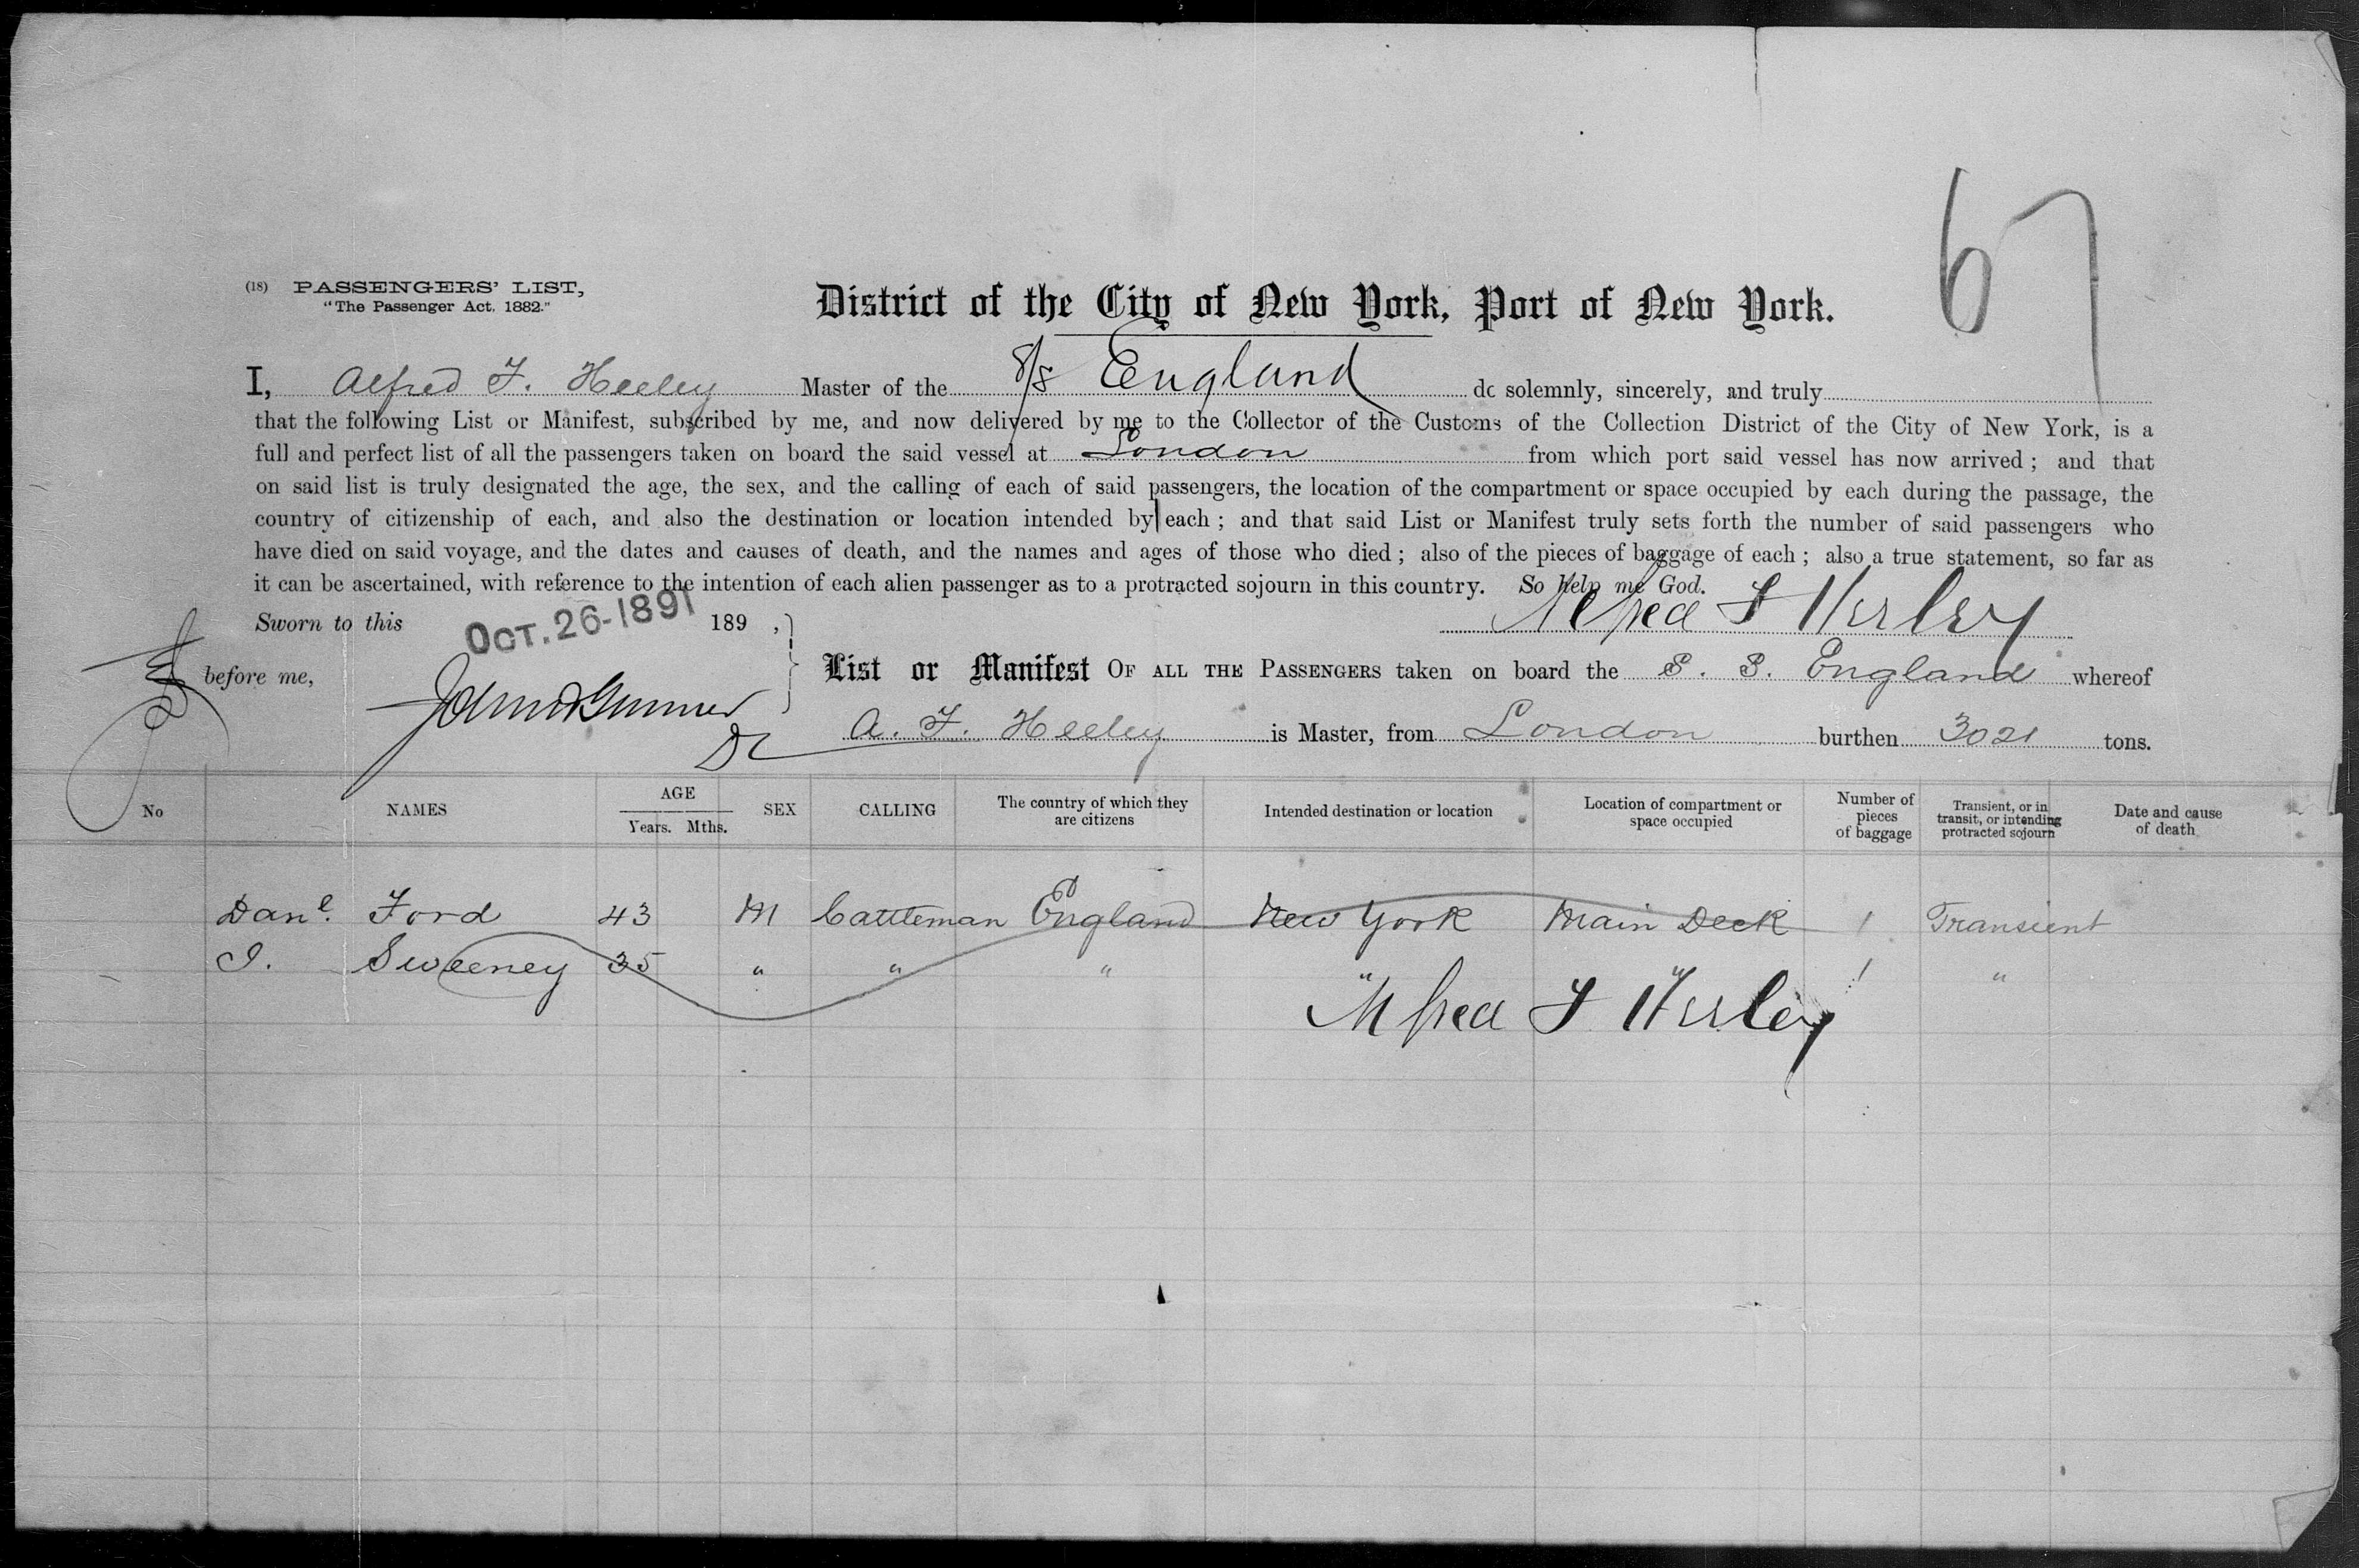 67
(18) PASSENGERS' LIST,
"The Passenger Act, 1882."
District of the City of New York, Port of New York.
I, Alfred F. Heeley Master of the S/S England do solemnly, sincerely, and truly
that the following List or Manifest, subscribed by me, and now delivered by me to the Collector of the Customs of the Collection District of the City of New York, is a
full and perfect list of all the passengers taken on board the said vessel at London from which port said vessel has now arrived; and that
on said list is truly designated the age, the sex, and the calling of each of said passengers, the location of the compartment or space occupied by each during the passage, the
country of citizenship of each, and also the destination or location intended by each; and that said List or Manifest truly sets forth the number of said passengers who
have died on said voyage, and the dates and causes of death, and the names and ages of those who died; also of the pieces of baggage of each; also a true statement, so far as
it can be ascertained, with reference to the intention of each alien passenger as to a protracted sojourn in this country. So help me God.
Sworn to this OCT. 26-1891 189 , Alfred F Heeley
before me,
List or Manifest OF ALL THE PASSENGERS taken on board the S. S. England whereof
A. F. Heeley is Master, from London burthen 3021 tons.
No NAMES AGE Years. Mths. SEX CALLING The country of which they are citizens Intended destination or location Location of compartment or space occupied Number of pieces of baggage Transient, or in transit, or intending protracted sojourn Date and cause of death
Danl. Ford 43 M Cattleman England New York Main Deck 1 Transient
J. Sweeney 35 " " " " " 1 "
Alfred F Heeley